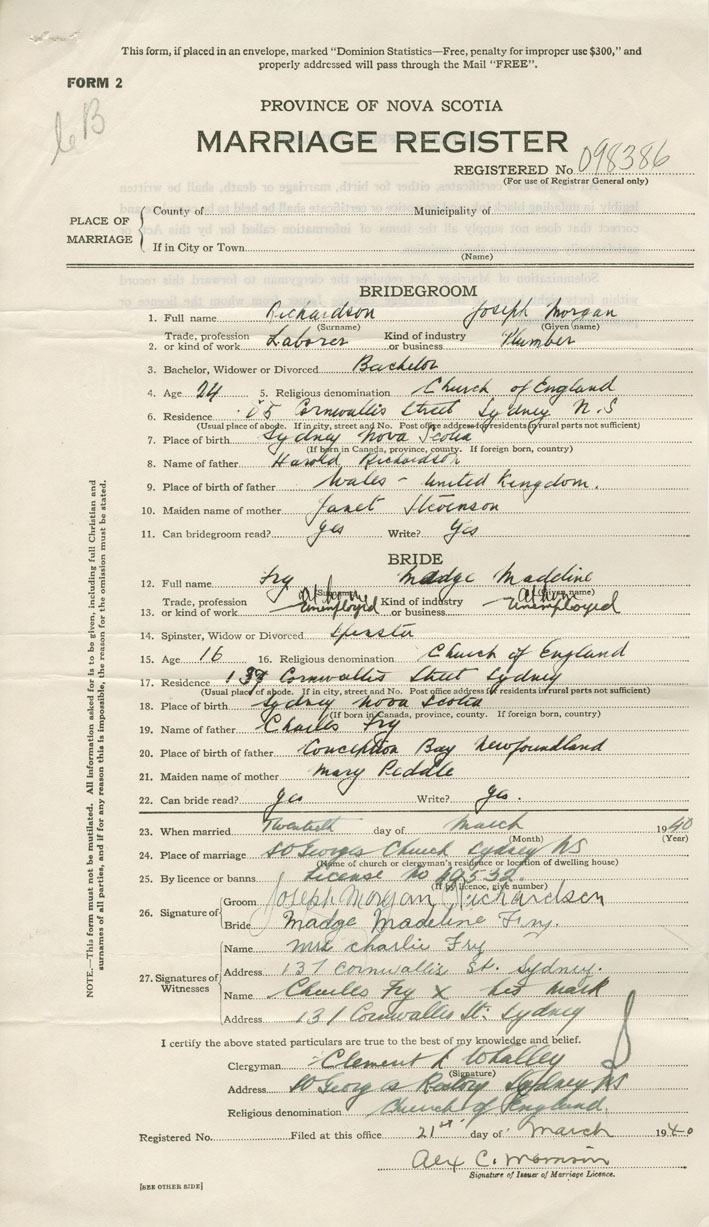 This form, if placed in an envelope, marked "Dominion Statistics—Free, penalty for improper use $300," and
properly addressed will pass through the Mail "FREE".
FORM 2
PROVINCE OF NOVA SCOTIA
MARRIAGE REGISTER
REGISTERED No. 098386
(For use of Registrar General only)
PLACE OF MARRIAGE
County of Municipality of
If in City or Town
(Name)
BRIDEGROOM
1. Full name Richardson Joseph Morgan
(Surname) (Given name)
2. Trade, profession or kind of work Laborer Kind of industry or business Plumber
3. Bachelor, Widower or Divorced Bachelor
4. Age 24 5. Religious denomination Church of England
6. Residence Cornwallis Street Sydney N.S
(Usual place of abode. If in city, street and No. Post office address for residents in rural parts not sufficient)
7. Place of birth Sydney Nova Scotia
(If born in Canada, province, county. If foreign born, country)
8. Name of father Harold Richardson
9. Place of birth of father Wales - United Kingdom.
10. Maiden name of mother Janet Stevenson
11. Can bridegroom read? Yes Write? Yes
BRIDE
12. Full name Fry Madge Madeline
(Surname) (Given name)
13. Trade, profession or kind of work at home unemployed Kind of industry or business at home unemployed
14. Spinster, Widow or Divorced Spinster
15. Age 16 16. Religious denomination Church of England
17. Residence 137 Cornwallis Street Sydney
(Usual place of abode. If in city, street and No. Post office address for residents in rural parts not sufficient)
18. Place of birth Sydney Nova Scotia
(If born in Canada, province, county. If foreign born, country)
19. Name of father Charles Fry
20. Place of birth of father Conception Bay Newfoundland
21. Maiden name of mother Mary Peddle
22. Can bride read? Yes Write? Yes.
23. When married Twentieth day of March 1940
(Month) (Year)
24. Place of marriage St Georges Church Sydney NS
(Name of church or clergyman's residence or location of dwelling house)
25. By licence or banns License No
(If by licence, give number)
26. Signature of Groom Joseph Morgan Richardson
Bride Madge Madeline Fry.
27. Signatures of Witnesses
Name Mrs Charlie Fry
Address 137 Cornwallis St. Sydney.
Name Charles Fry X his mark
Address 137 Cornwallis St. Sydney
I certify the above stated particulars are true to the best of my knowledge and belief.
Clergyman Clement L Whalley
(Signature)
Address St Georges Rectory Sydney NS
Religious denomination Church of England.
Registered No. Filed at this office 21st day of March 1940
Alex C. Morrison
Signature of Issuer of Marriage Licence.
[SEE OTHER SIDE]
NOTE.—This form must not be mutilated. All information asked for is to be given, including full Christian and
surnames of all parties, and if for any reason this is impossible, the reason for the omission must be stated.